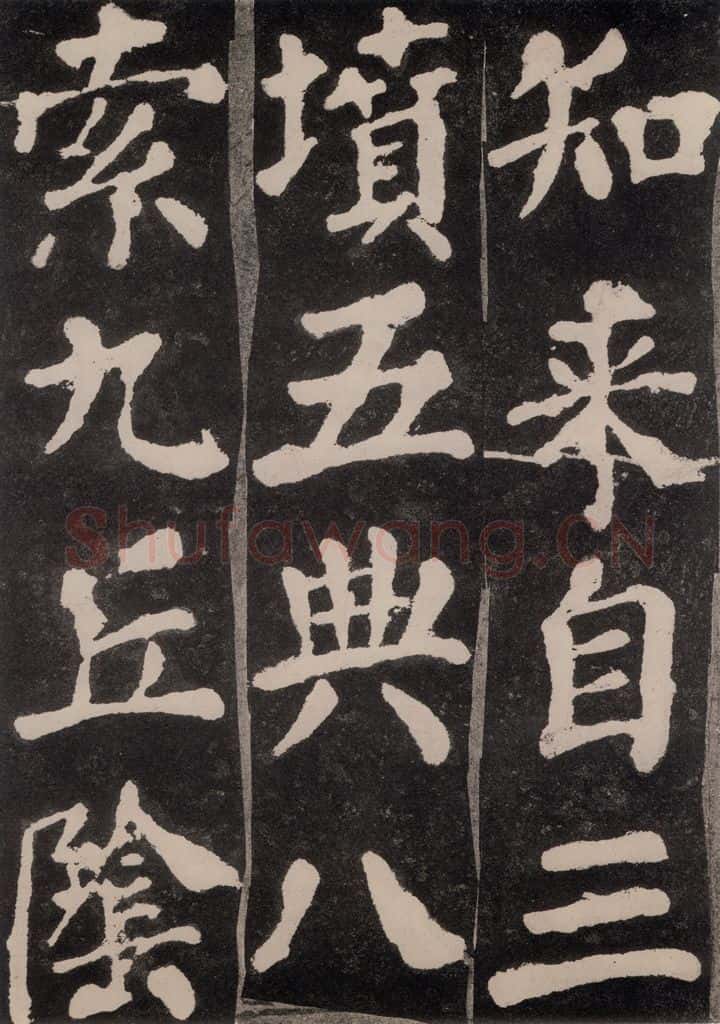 知来自三
墳五典八
索九丘陰
Shufawang.CN